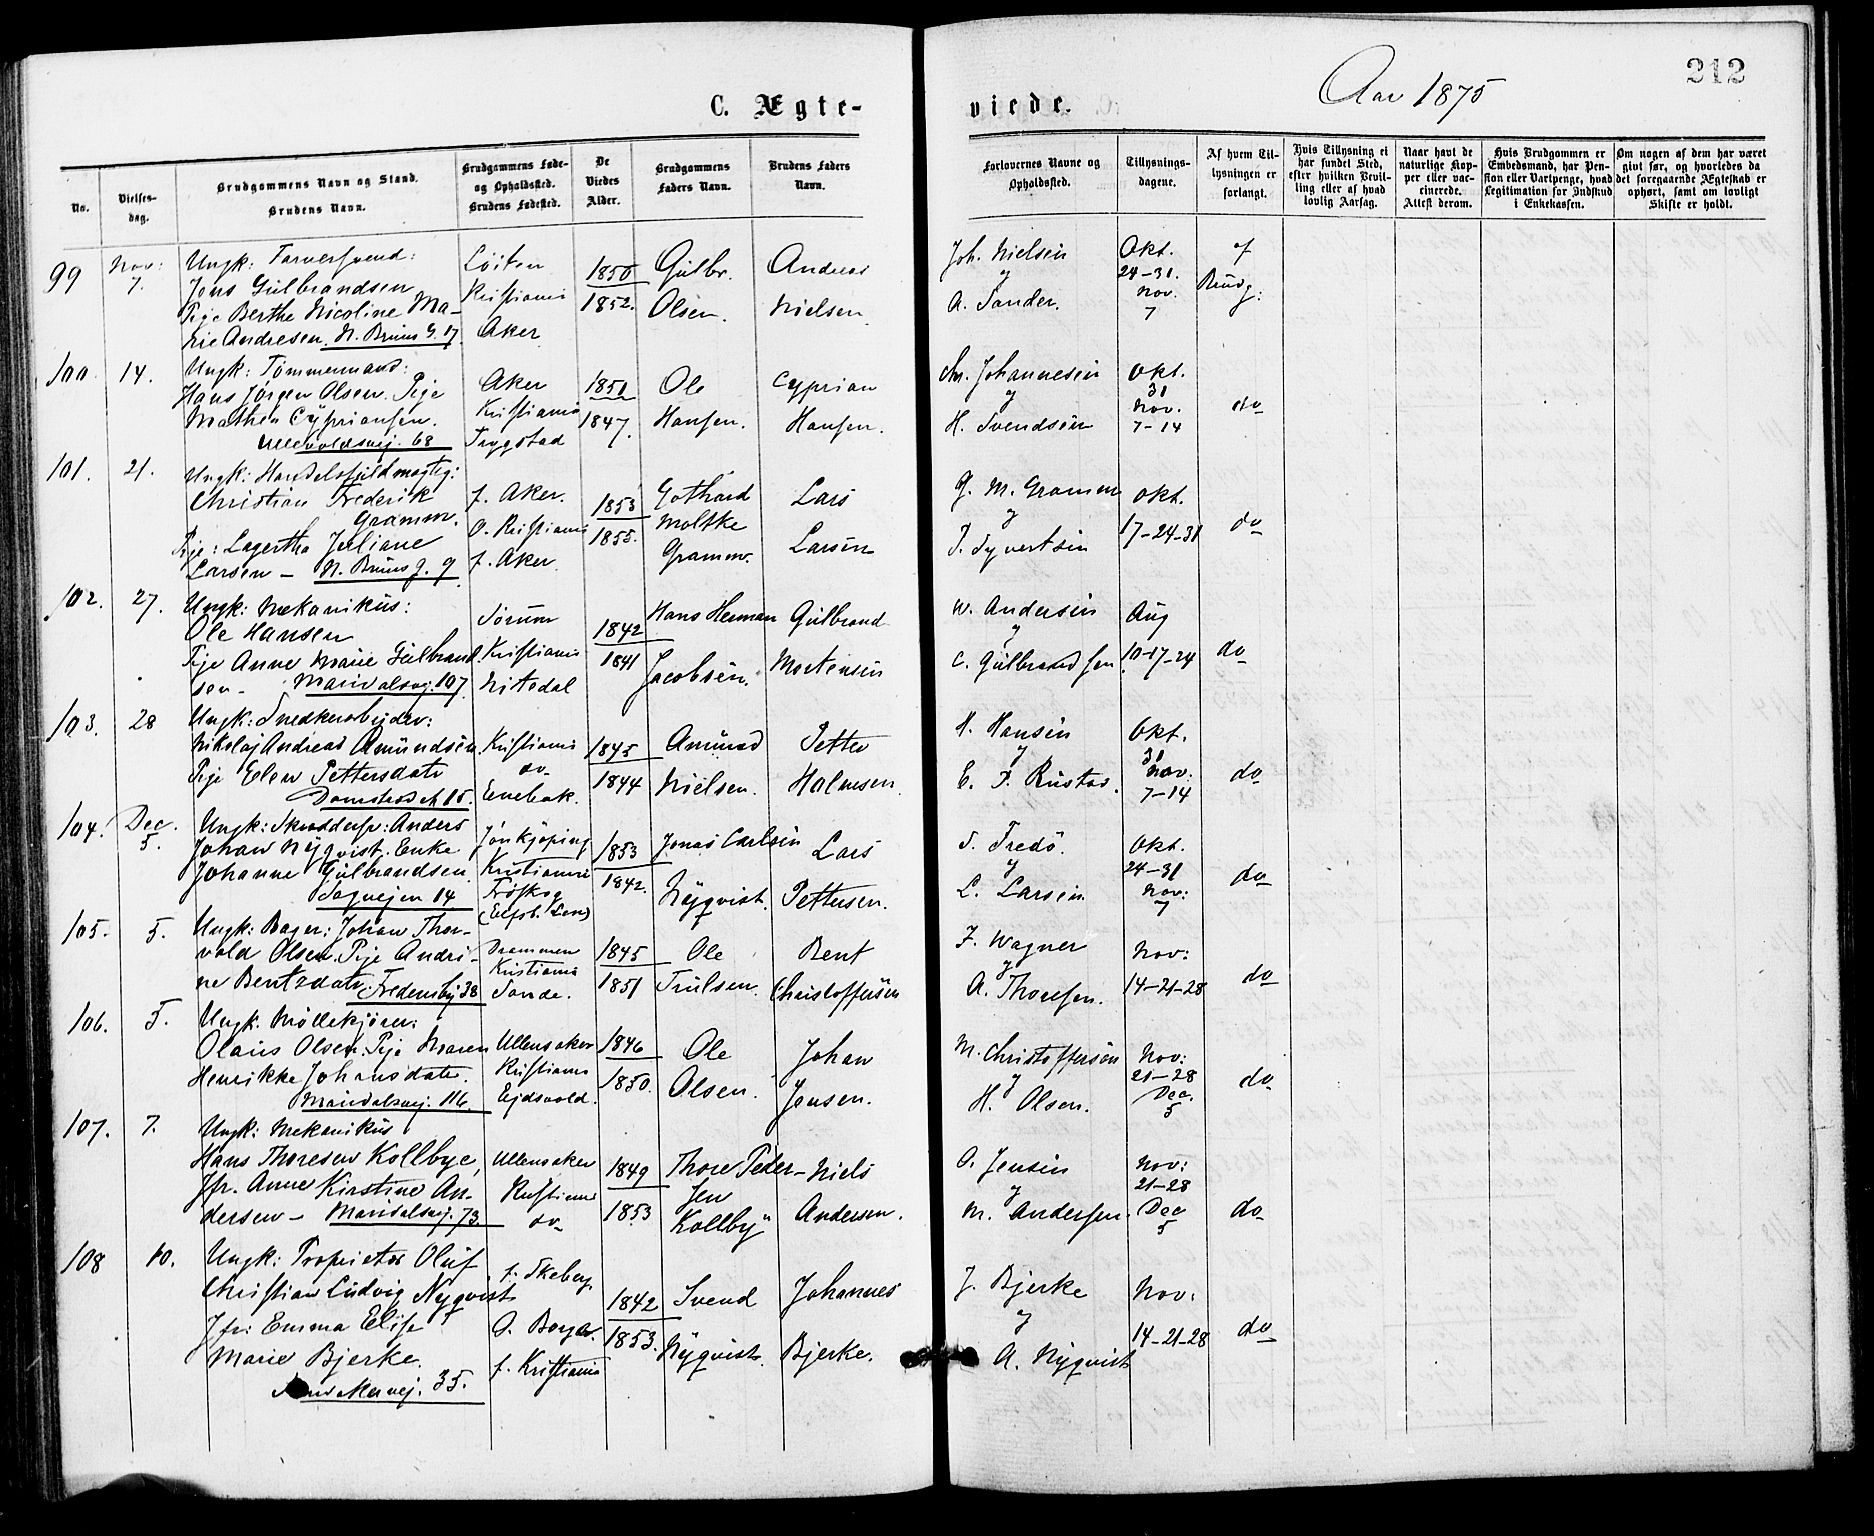 212
Aar 1875
C. Ægte-
viede.
No.
Vielses-
dag.
Brudgommens Navn og Stand.
Brudens Navn.
Brudgommens Føde-
og Opholdssted.
Brudens Fødested.
De
Viedes
Alder.
Brudgommens
Faders Navn.
Brudens Faders
Navn.
Forlovernes Navne og
Opholdssted.
Tillysnings-
dagene.
Af hvem Til-
lysningen er
forlangt.
Hvis Tillysning ei
har fundet Sted,
efter hvilken Bevil-
ling eller af hvad
lovlig Aarsag.
Naar havt de
naturlige Kop-
per eller vac-
cinerede.
Attest derom.
Hvis Brudgommen er
Embedsmand, har Pen-
sion eller Vartpenge, hvad
Legitimation for Indskud
i Enkekassen.
Om nogen af dem har været
givt før, og hvorledes da
det foregaaende Ægteskab er
ophørt, samt om lovligt
Skifte er holdt.
99
Nov:
7.
Ungk: Farversvend:
Jens Gulbrandsen
Pige Berthe Nicoline Ma-
rie Andresen. N. Bruns G. 17
Löiten
Kristiania
Aker
1850
1852.
Gulbr.
Olsen.
Andreas
Nielsen
Joh. Nielsen
og
A. Sander.
Okt.
24-31.
Nov.
7
af
Brudg:
100
14.
Ungk: Tömmermand:
Hans Jörgen Olsen. Pige
Mathea Cypriansen.
Ullevoldsvej. 68
Aker
Kristiania
Trygstad
1850
1847.
Ole
Hansen.
Cyprian
Hansen.
Chr. Johannesen
og
H. Svendsen
Okt.
31
Nov.
7-14
do
101.
21.
Ungk: Handelsfuldmægtig:
Christian Frederik
Gramm.
Pige: Lagertha Juliane
Larsen - N. Bruns g. 9
f. Aker.
O. Kristiania
f. Aker.
1853
1855.
Gothard
Moltke
Gramm.
Lars
Larsen
G. M. Gramm
og
P. Syvertsen
Okt.
17-24-31
do
102.
27.
Ungk: Mekanikus:
Ole Hansen
Pige Anne Marie Gulbrand
sen - Maridalsvej. 107
Sörum
Kristiania
Nitedal
1842
1841
Hans Herman
Jacobsen.
Gulbrand
Mortensen
W. Andersen
og
C. Gulbrandsen
Aug
10-17-24
do
103.
28
Ungk: Snedkerarbejder:
Nikolaj Andreas Amundsen
Pige Ellen Pettersdatr
Damstredet 15.
Kristiania
do
Enebak.
1845
1844
Amund
Nielsen.
Petter
Halmsen.
H. Hansen
og
E. F. Rustad.
Okt.
31
Nov:
7-14
do
104.
Dec.
5.
Ungk: Skrædersv: Anders
Johan Nyqvist. Enke
Johanne Gulbrandsen
Sagvejen 14
Jönkjöping
Kristiania
Fröskog
(Elfsb. Len)
1853
1842.
Jonas Carlsen
Nyqvist.
Lars
Pettersen.
S. Fredö.
og
L. Larsen
Okt.
24-31
Nov:
7
do
105.
5.
Ungk: Bager: Johan Thor-
vald Olsen. Pige Andri-
ne Bentsdatr. Fredensbg 38
Drammen
Kristiania
Sande.
1845
1851
Ole
Trulsen.
Bent
Christoffersen
F. Wagner
og
A. Thoresen.
Nov:
14-21-28
do
106.
5.
Ungk. Möllekjörer:
Olaus Olsen. Pige Maren
Henrikke Johansdatr.
Maridalsvej. 116.
Ullensaker
Kristiania
Ejdsvold.
1846
1850.
Ole
Olsen.
Johan
Jensen.
M. Christoffersen
og
H. Olsen.
Nov:
21-28
Dec.
5
do
107.
7.
Ungk: Mekanikus
Hans Thoresen Kollbye,
Jfr. Anne Kirstine An-
dersen - Maridalsvej. 73
Ullensaker
Kristiania
do
1849
1853
Thore Peder-
sen
Kollby
Niels
Andersen.
O. Jensen
og
M. Andersen.
Nov:
21-28
Dec
5
do
108
10.
Ungk: Proprietær Oluf
Christian Ludvig Nyqvist
Jfr: Emma Elise
Marie Bjerke.
35.
f. Skeberg.
O. Borge.
f. Kristiania
1842
1853.
Svend
Nyqvist.
Johannes
Bjerke.
J. Bjerke
og
A. Nyqvist
Nov:
14-21-28
do